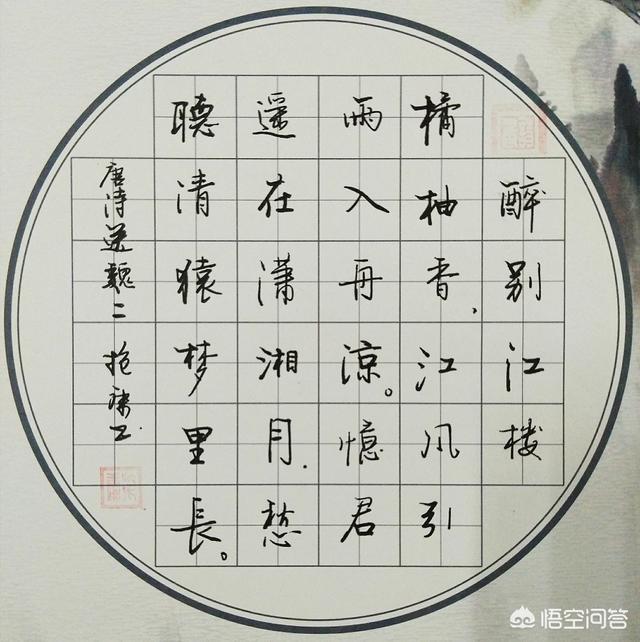 醉别江楼
橘柚香，江风引
雨入舟涼。憶君
遥在潇湘月，愁
聽清猿梦里長。
唐诗送魏二
悟空问答